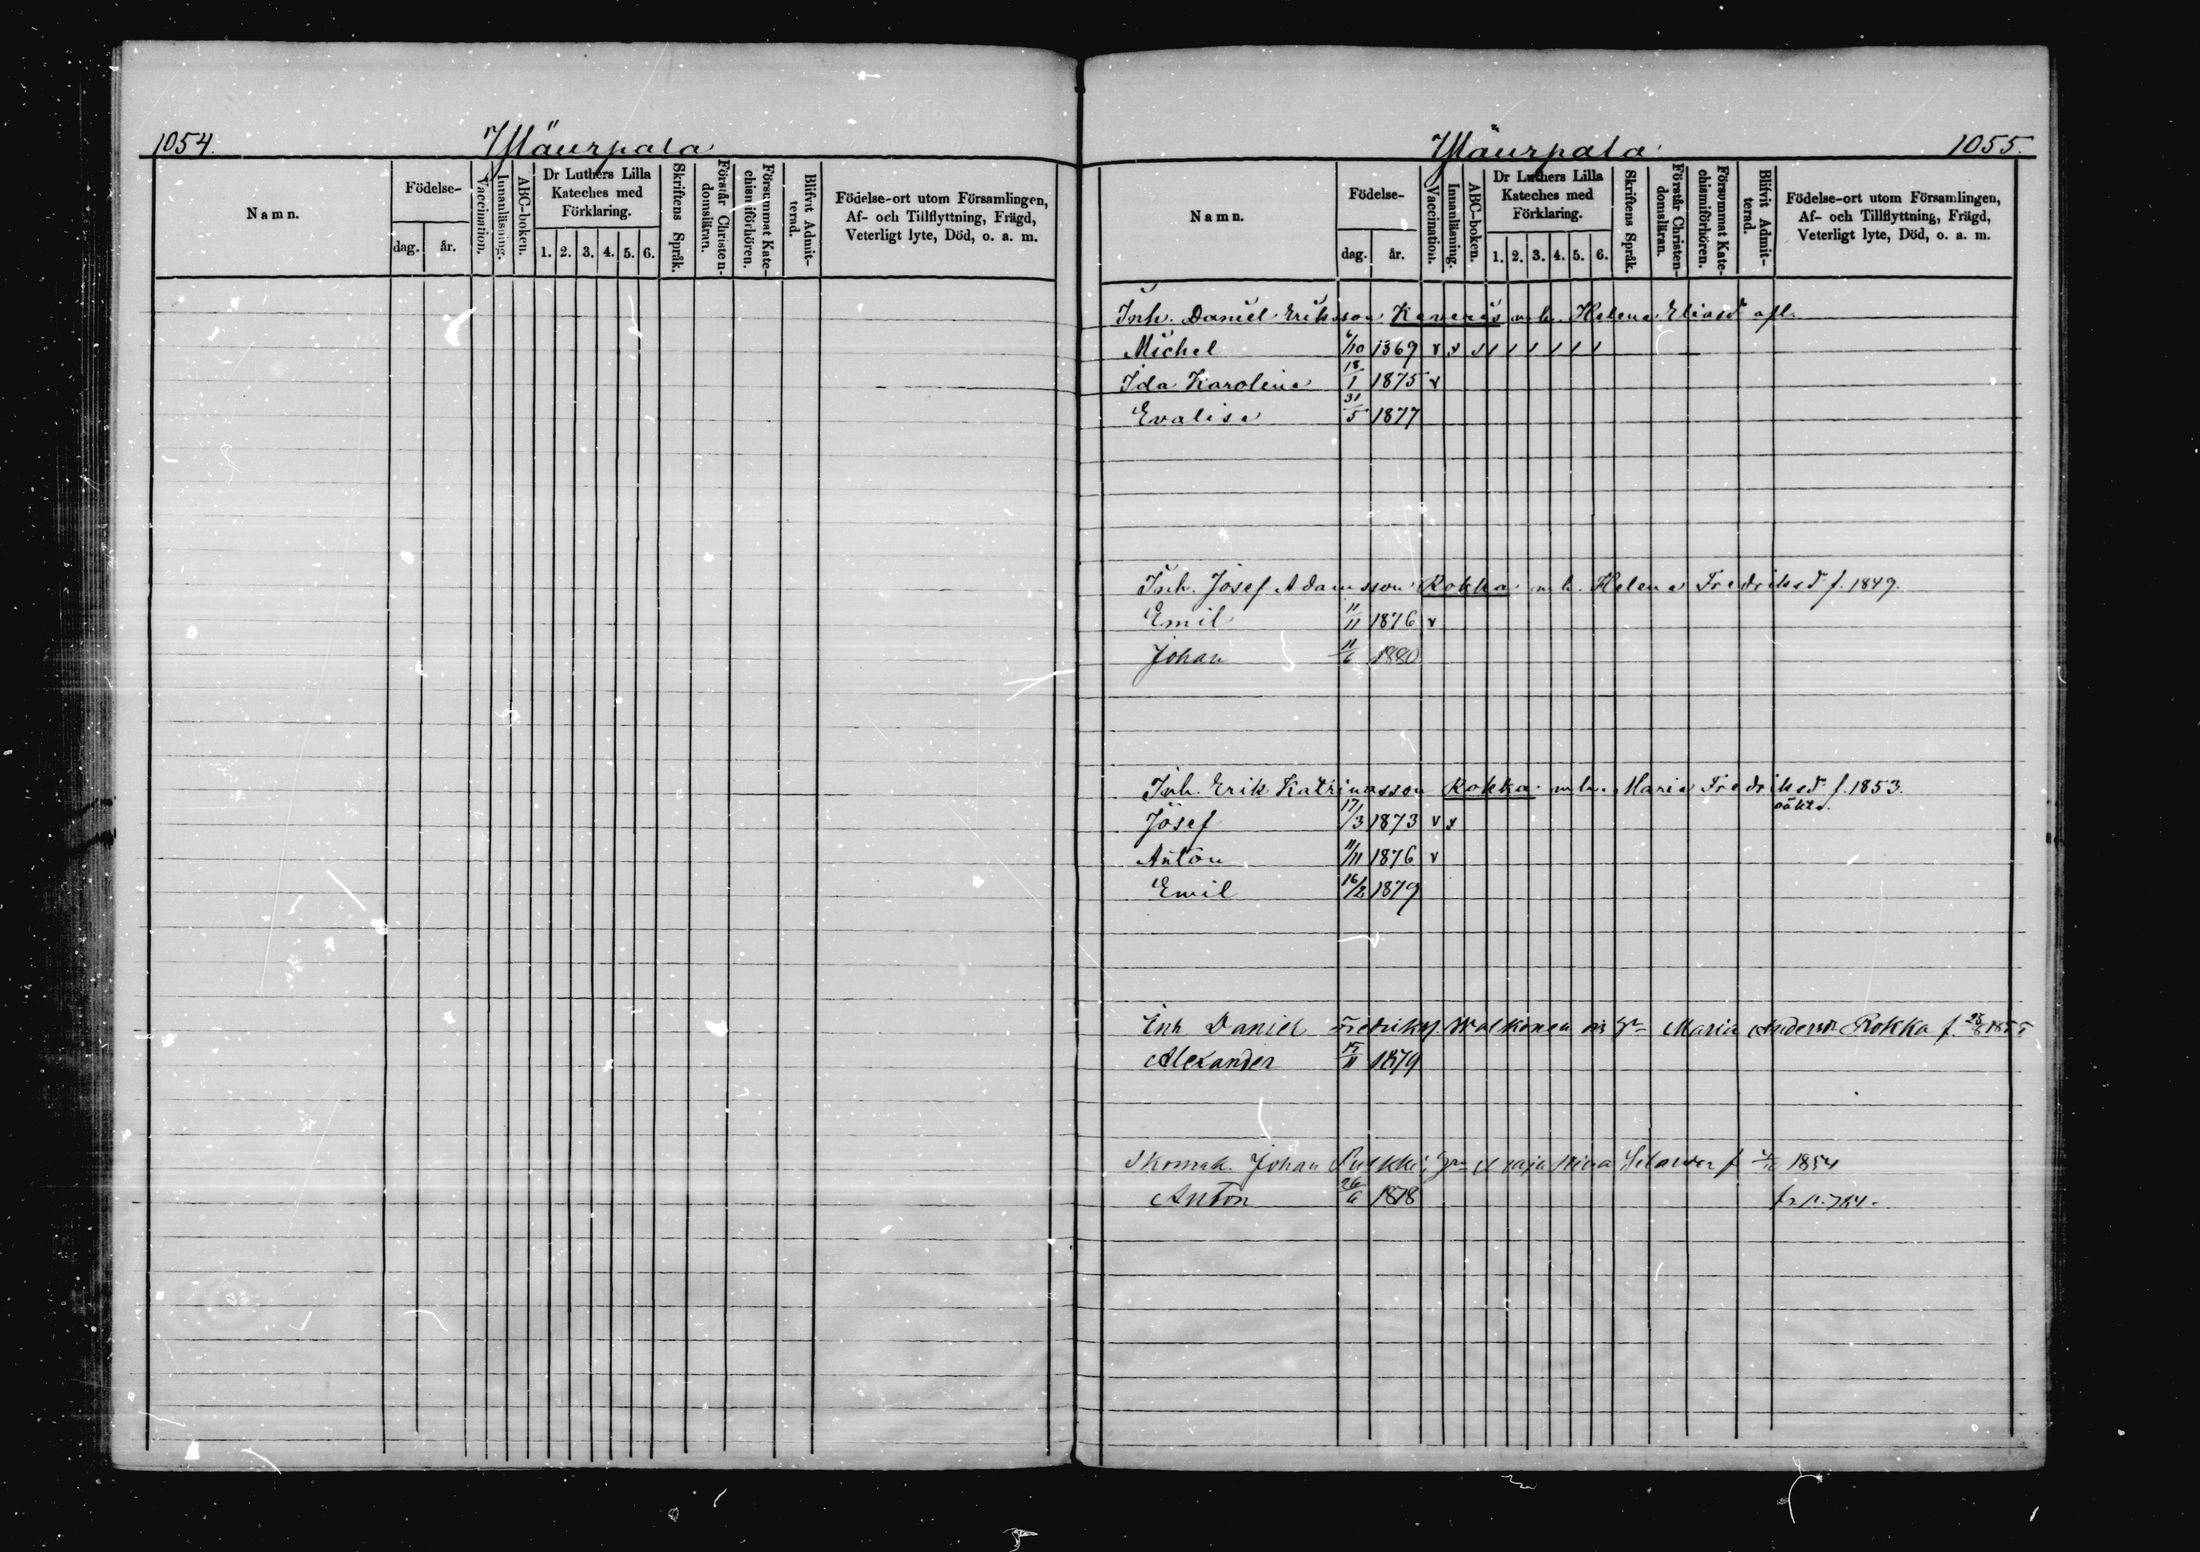 1054.
Mäurpala
Namn.
Födelse-
dag.
år.
Vaccination.
Innanläsning.
ABC-boken.
Dr Luthers Lilla
Kateches med
Förklaring.
1. 2. 3. 4. 5. 6.
Skriftens Språk.
Förstår Christen-
domsläran.
Försummat Kate-
chismiförhören.
Blifvit Admit-
terad.
Födelse-ort utom Församlingen,
Af- och Tillflyttning, Frägd,
Veterligt lyte, Död, o. a. m.
Mäurpala
1055.
Namn.
Födelse-
dag.
år.
Vaccination.
Innanläsning.
ABC-boken.
Dr Luthers Lilla
Kateches med
Förklaring.
1. 2. 3. 4. 5. 6.
Skriftens Språk.
Förstår Christen-
domsläran.
Försummat Kate-
chismiförhören.
Blifvit Admit-
terad.
Födelse-ort utom Församlingen,
Af- och Tillflyttning, Frägd,
Veterligt lyte, Död, o. a. m.
Inh. Daniel Eriksson Kaveris m. h. Helena Eliasd afl.
Michel 6/10 1869 v x
Ida Karolina 18/1 1875 v
Evalisa 31/5 1877
Inh. Josef Adamsson Rokka m. h. Helena Fredriksd f. 1849.
Emil 11/11 1876 v
Johan 11/6 1880
Inh. Erik Katrinasson Rokka m. h. Maria Fredriksd f. 1853.
oäkta.
Josef 17/3 1873 v x
Anton 11/11 1876 v
Emil 16/2 1879
Inh Daniel Fredriks. Walkonen Maria Anders Rokka f.
Alexander 15/11 1879
Skomak. Johan Maja Stina f 1854
Anton 26/6 1878